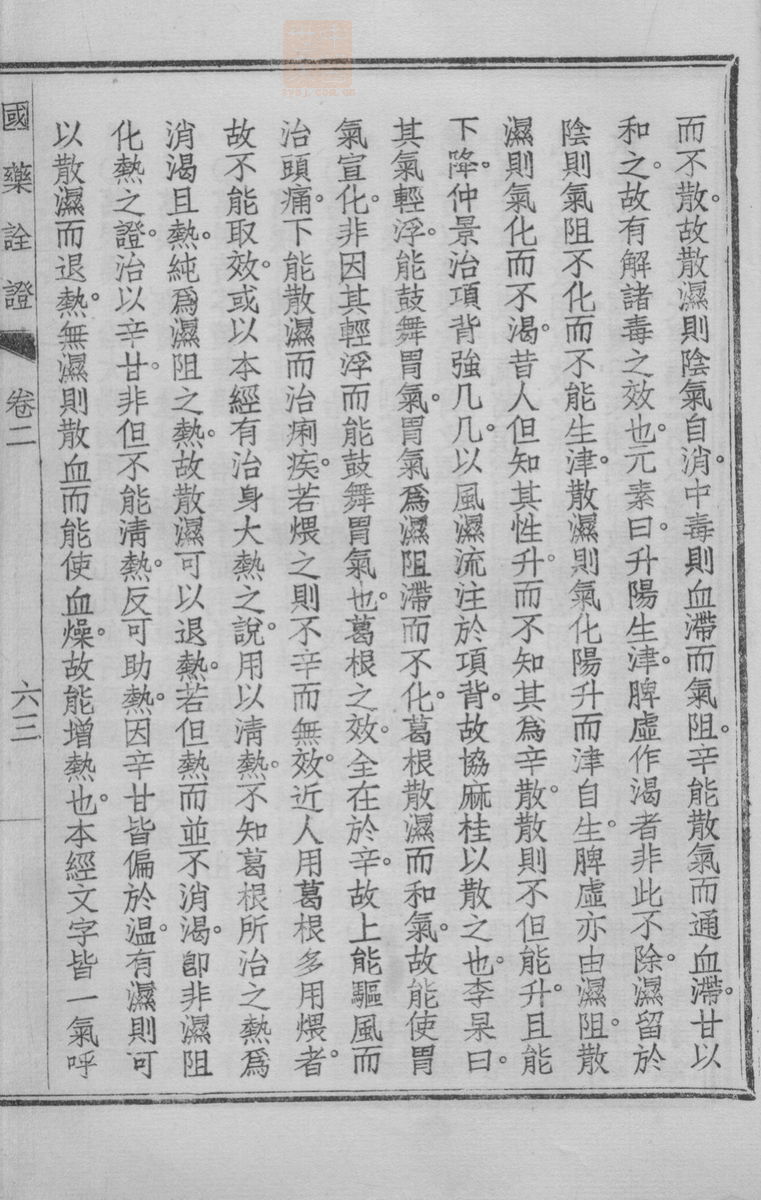 而不散。故散濕則陰氣自消。中毒則血滯而氣阻。辛能散氣而通血滯。甘以
和之。故有解諸毒之效也。元素曰。升陽生津。脾虛作渴者非此不除。濕留於
陰則氣阻不化而不能生津。散濕則氣化陽升而津自生。脾虛亦由濕阻。散
濕則氣化而不渴。昔人但知其性升。而不知其爲辛散。散則不但能升。且能
下降。仲景治項背強几几。以風濕流注於項背。故協麻桂以散之也。李杲曰。
其氣輕浮。能鼓舞胃氣。胃氣爲濕阻滯而不化。葛根散濕而和氣。故能使胃
氣宣化。非因其輕浮而能鼓舞胃氣也。葛根之效。全在於辛。故上能驅風而
治頭痛。下能散濕而治痢疾。若煨之則不辛而無效。近人用葛根多用煨者。
故不能取效。或以本經有治身大熱之說。用以清熱。不知葛根所治之熱爲
消渴且熱。純爲濕阻之熱。故散濕可以退熱。若但熱而並不消渴。卽非濕阻
化熱之證。治以辛甘。非但不能清熱。反可助熱。因辛甘皆偏於温。有濕則可
以散濕而退熱。無濕則散血而能使血燥。故能增熱也。本經文字皆一氣呼
國藥詮證 卷二 六三